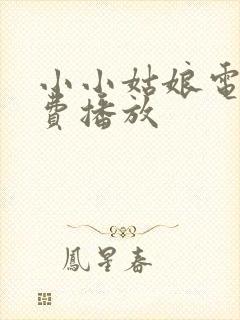 小小姑娘電
費播放
鳳星春